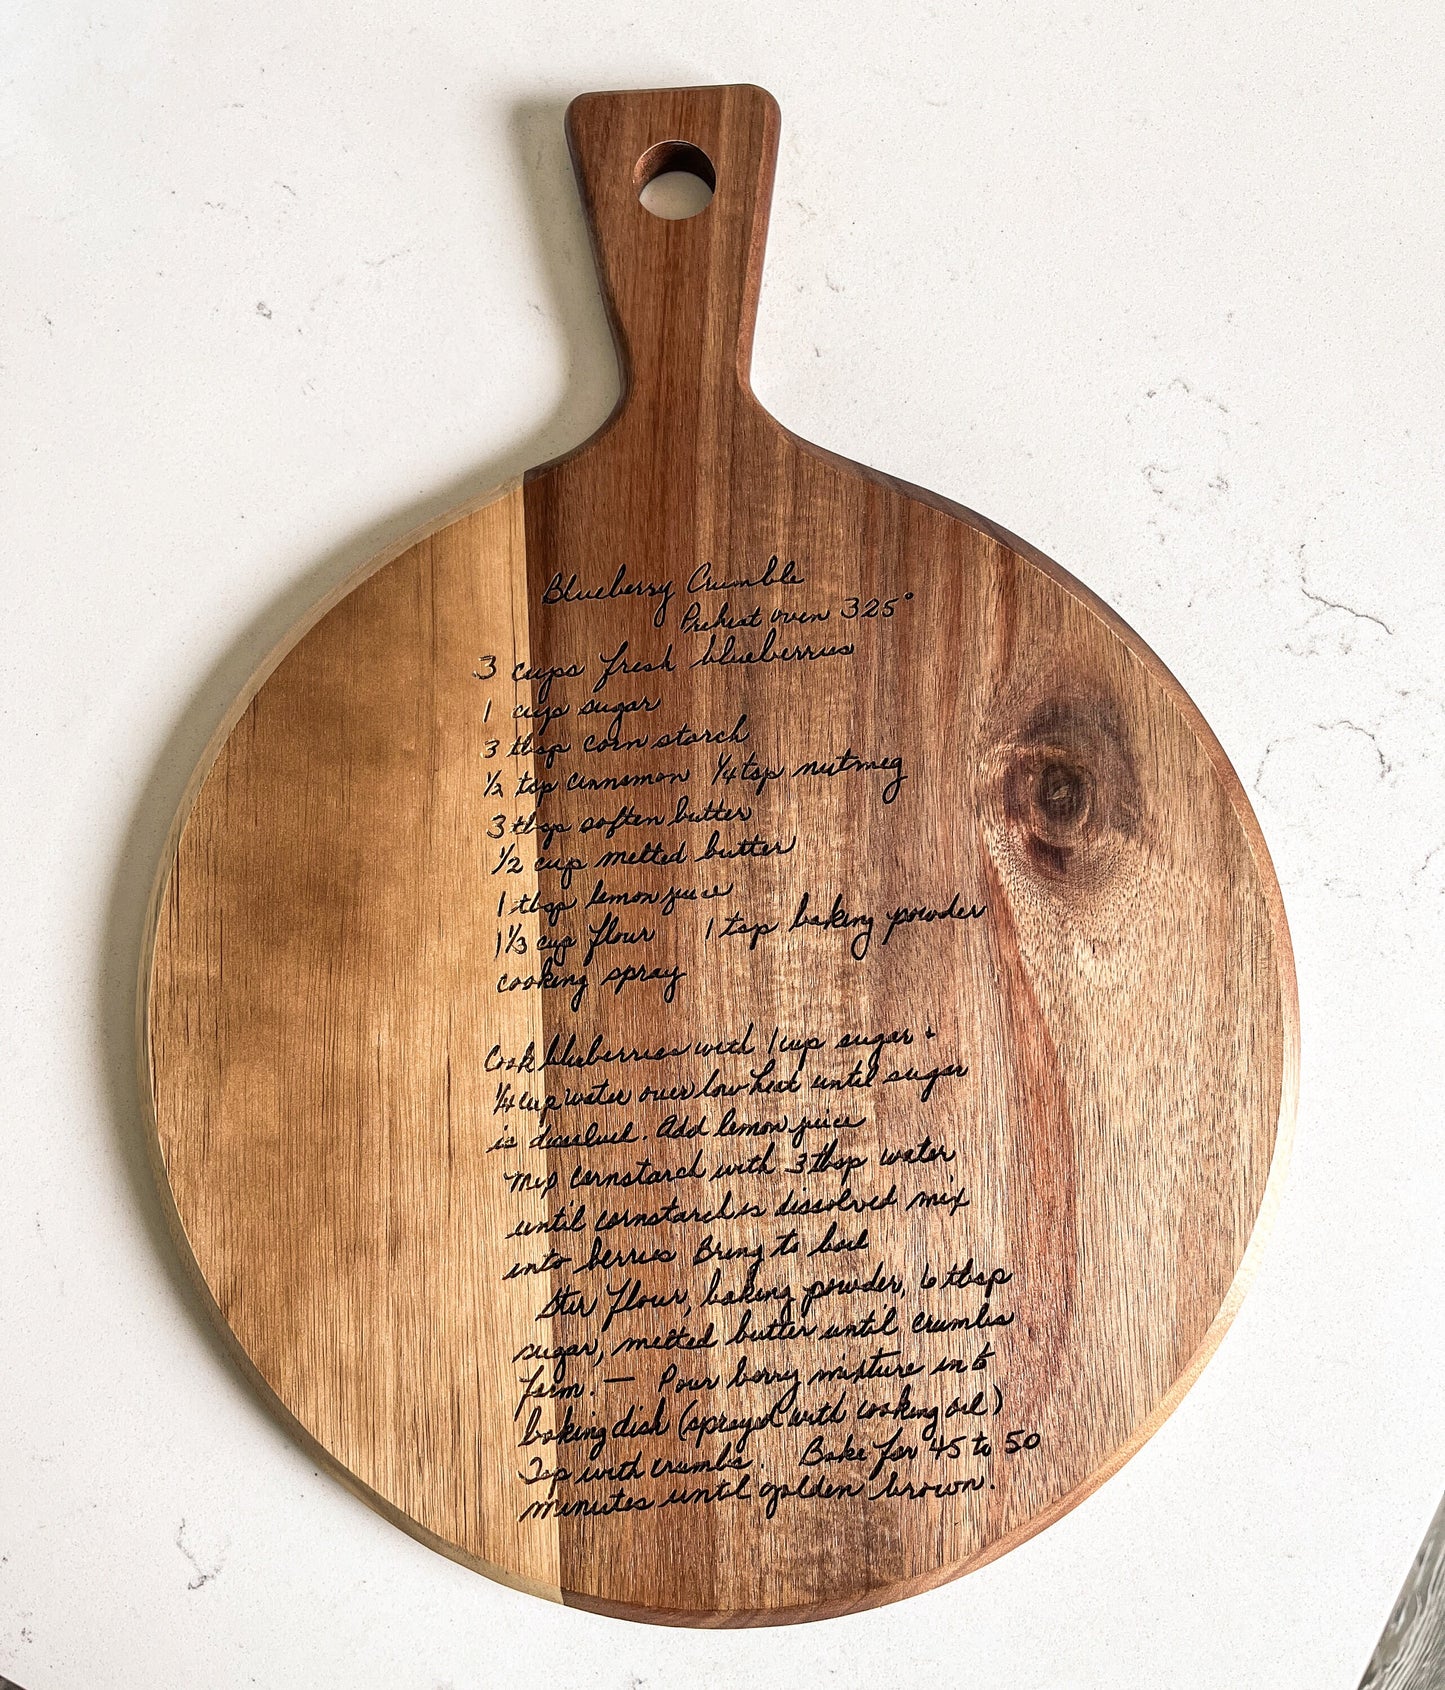 Blueberry Crumble
Preheat oven 325°
3 cups fresh blueberries
1 cup sugar
3 tbsp corn starch
½ tsp cinnamon ¼ tsp nutmeg
3 tbsp soften butter
½ cup melted butter
1 tbsp lemon juice
1⅓ cup flour 1 tsp baking powder
cooking spray
Cook blueberries with 1 cup sugar +
¼ cup water over low heat until sugar
is dissolved. Add lemon juice
Mix cornstarch with 3 tbsp water
until cornstarch is dissolved mix
into berries Bring to boil
Stir flour, baking powder, 6 tbsp
sugar, melted butter until crumbs
form. — Pour berry mixture into
baking dish (sprayed with cooking oil)
Top with crumbs. Bake for 45 to 50
minutes until golden brown.